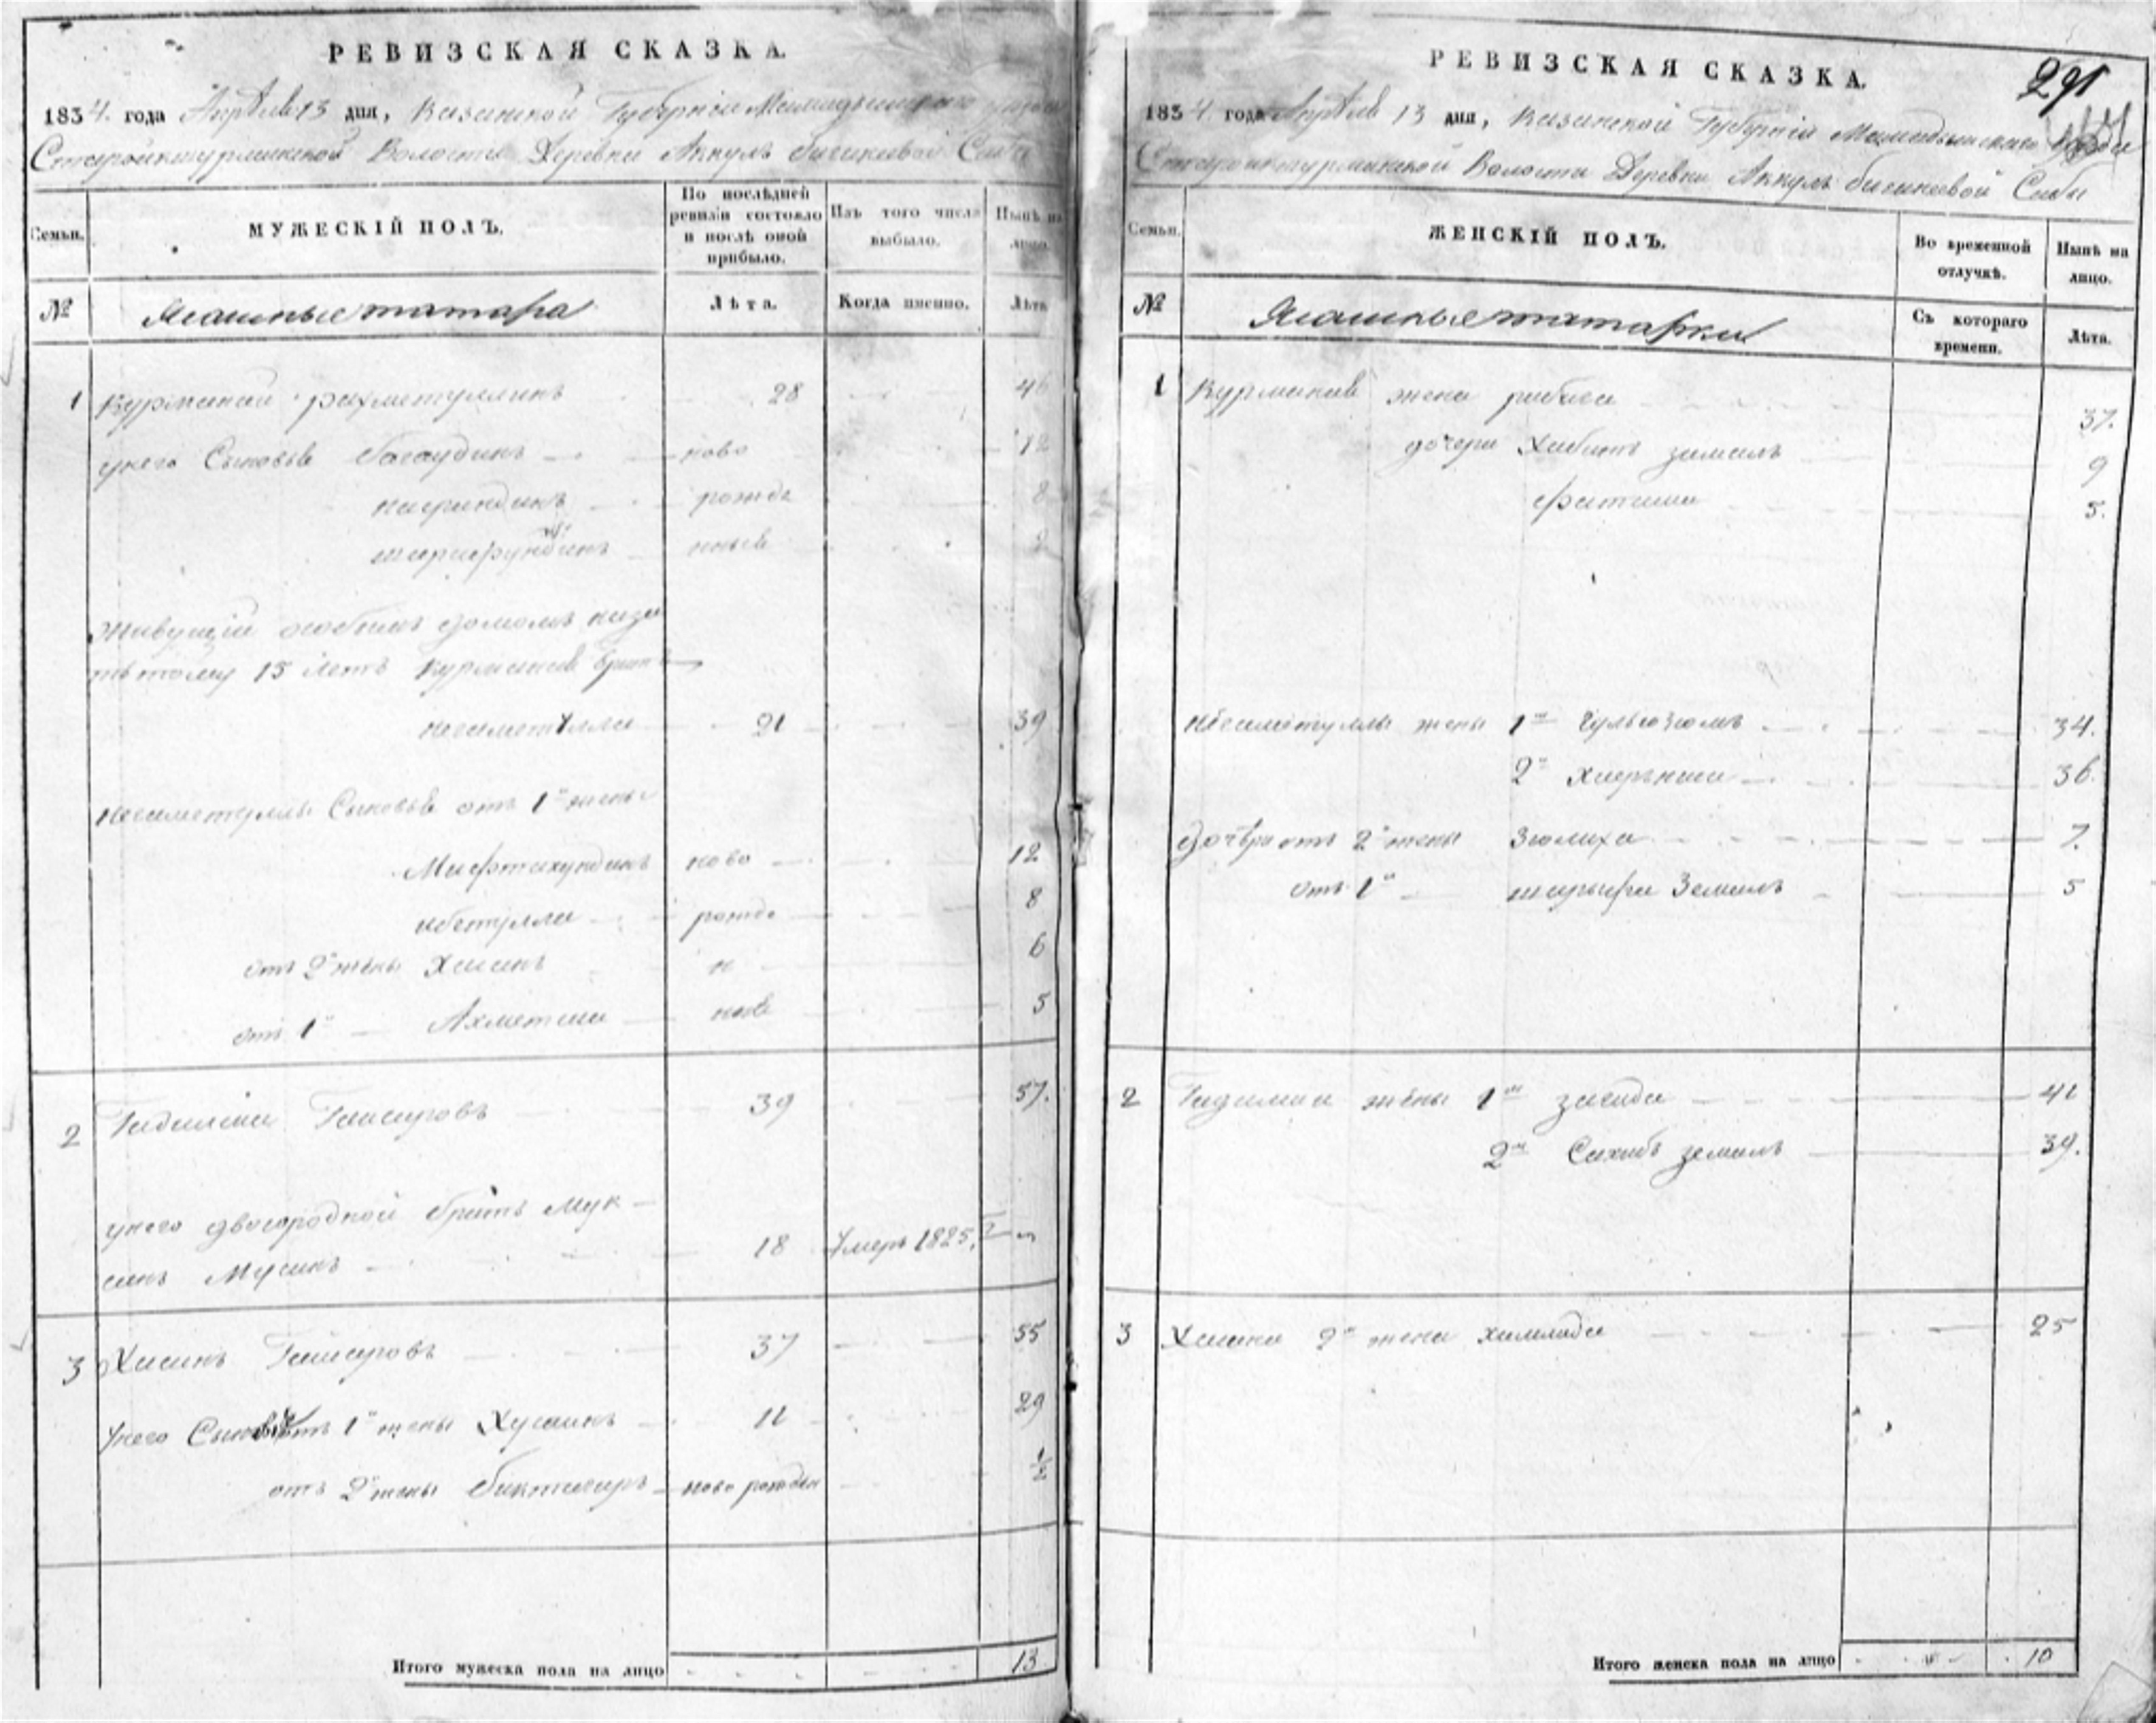 РЕВИЗСКАЯ СКАЗКА.
1834. года Апреля 13 дня, Казанской Губернии Мамадышского уезда
Староикшурминской Волости Деревни Аккуль бигиневой Сабы
Семьи.
МУЖЕСКІЙ ПОЛЪ.
По послѣдней ревизіи состояло и послѣ оной прибыло.
Изъ того числа выбыло.
Нынѣ на лицо.
№
Ясашные татара
Лѣта.
Когда именно.
Лѣта
1 Курманай рахметуллинъ 28 46
у него Сыновья багаудинъ ново 12
насрындинъ рожде 8
шарафундинъ нные 2
Живущій особымъ домомъ наза
тъ тому 15 летъ Курманая братъ
несаметулла 21 39
несаметуллы Сыновья отъ 1й жены
Мифтахундинъ ново 12
ибетулла рожде 8
отъ 2й жены Хасанъ н 6
отъ 1й Ахметша ные 5
2 Гадилша Гайсаровъ 39 57.
у него двоюродной братъ Мук-
синъ Мусинъ 18 Умеръ 1825,
3 Хасанъ Гайсаровъ 37 55
У него Сыновья отъ 1й жены Хусаинъ 11 29
отъ 2й жены биктагиръ ново рожден ½
Итого мужеска пола на лицо 13
РЕВИЗСКАЯ СКАЗКА.
291
1834 года Апреля 13 дня, Казанской Губерніи Мамадышскаго уезда
Староикшурминской Волости Деревни Аккуль бигиневой Сабы
Семьи.
ЖЕНСКІЙ ПОЛЪ.
Во временной отлучкѣ.
Нынѣ на лицо.
№
Ясашные татарки
Съ котораго времени.
Лѣта.
1 Курманая жена рабига 37.
дочери Хабибъ замалъ 9
Фатима 5.
несаметуллы жены 1я Гульюзюмъ 34.
2я Хаернса 36.
дочери отъ 2й жены Зюлиха 7.
отъ 1й шарыфа Земалъ 5
2 Гадилши жены 1я загида 41
2я Сахибъ земалъ 39.
3 Хасана 2я жена хамида 25
Итого женска пола на лицо 10